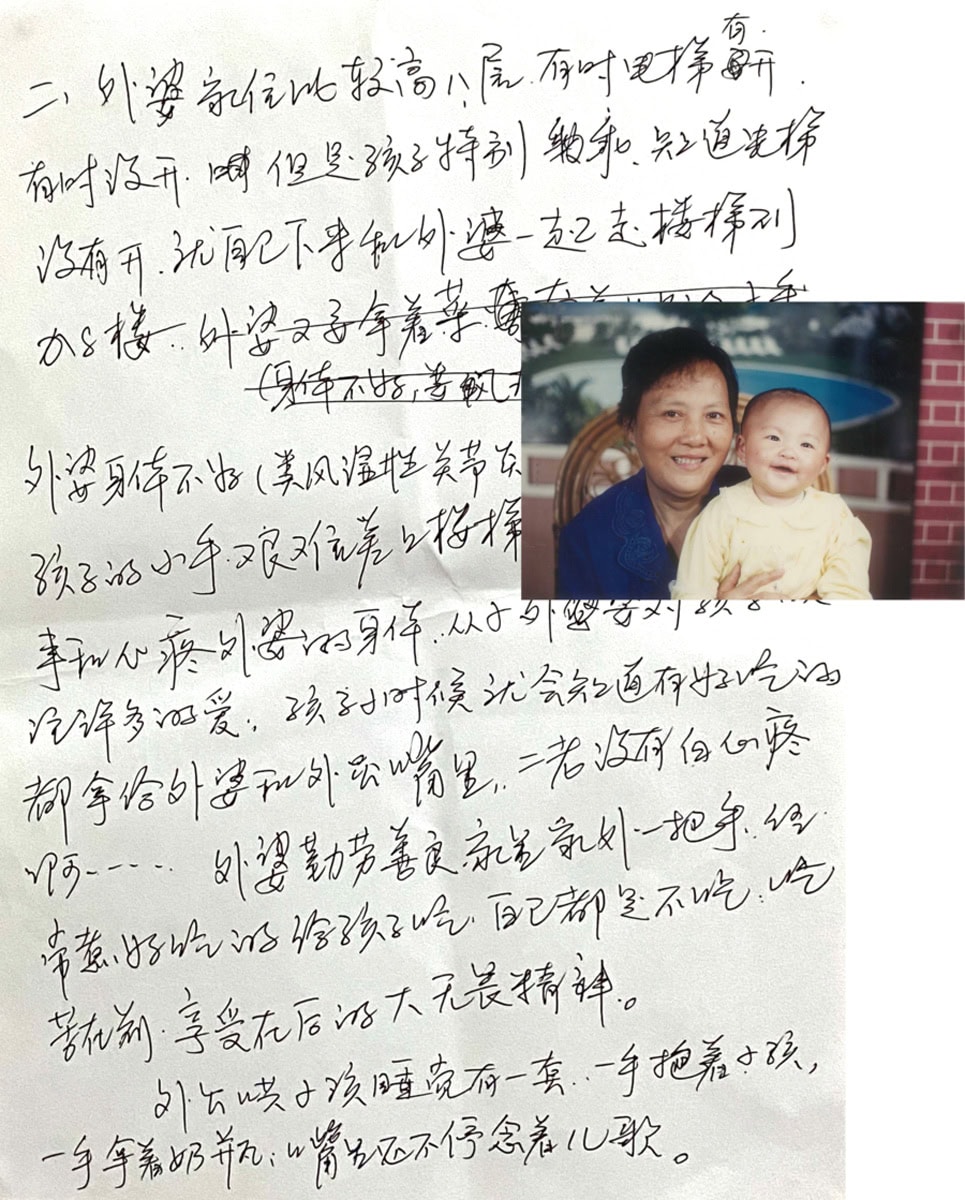 二、外婆家住比较高八层.有时电梯有开.
有时没开.但是孩子特别乖.知道电梯
没有开.就自己下来和外婆一起走楼梯到
加8楼..外婆又要拿着菜.
(身体不好,
外婆身体不好(类风湿性关节炎
孩子的小手.又艰难信着上楼梯
事和心疼外婆的身体..从小外婆对孩子
注许多的爱;孩子小时候就会知道有好吃的
都拿给外婆和外公嘴里,.二老没有白心疼
啊----外婆勤劳善良.家里家外一把手.经
常煮好吃的给孩子吃.自己都是不吃;吃
苦在前.享受在后的大无畏精神。
外公哄小孩睡觉有一套..一手抱着小孩,
一手拿着奶瓶;嘴里还不停念着儿歌。